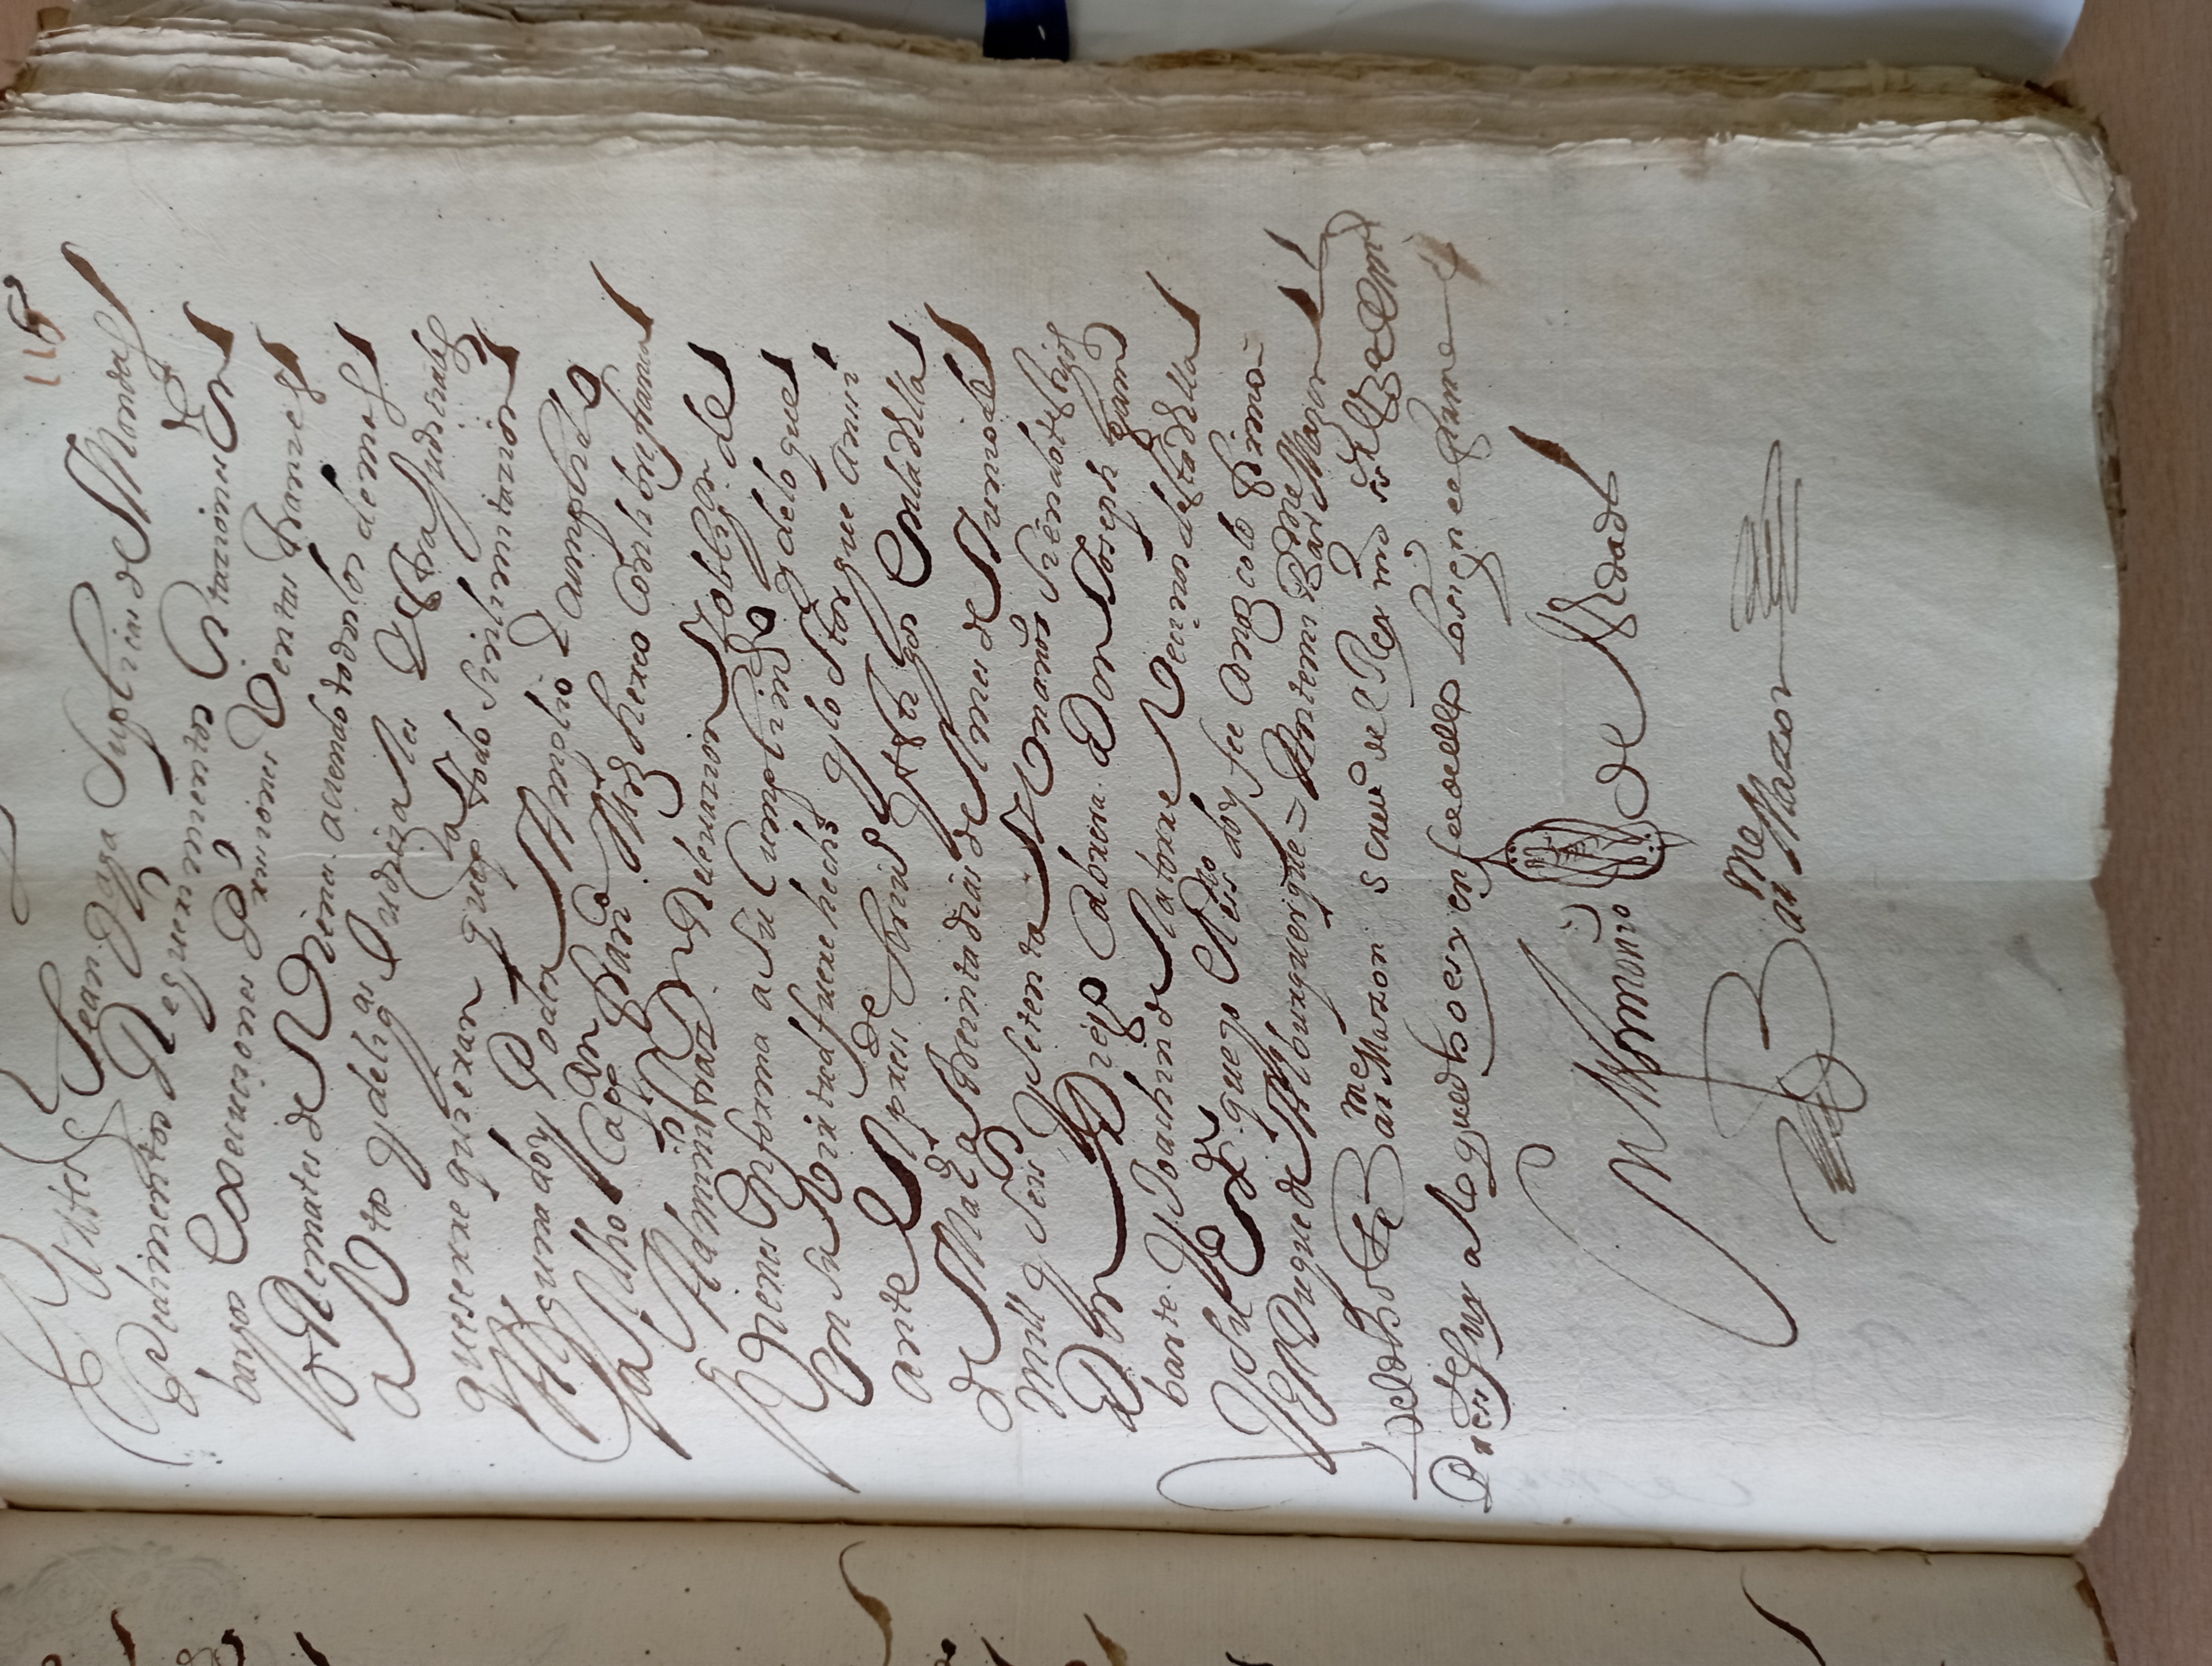 115
Antes Sean y aga Suplicas demandas
Pedimentos Requerimientos Citaziones En
bargos Execuciones Prissiones Ventas tranzes
y Remates de Vienes aciendo todos los demas
autos y delig.as Judiciales Y Estra Judiciales
que serre quieran que p.a todo sin limitazion
Alguna doy Poder Amplio Y cumplido
al dho Capp.an fran.co con libre franca
Administraz.n Relevazion Y obblig.on de
Vienes En forma a su Cumplim.to y de lo que
en su Virtud fuere hecho y lo otorgue ansi
ante el press.te scriu.o y testigos En la Villa
de Mad.d a treinta dias del mes de Junio de
mill y seis.s y setenta Y Un años siendo testigos
Don Diego Cabrera Don Joseph gam
barte y Joachin de la torre Vecinos desta Villa
y su Ex.a que yo el ess.no doy fee conozco lo firmo =
El Duque de Alburquerque = Ante mi Bar.me Mazon
del dho Bar.me Mazon scriu.o del Rey n.ro s.r
Press.te fuy a lo que dho es y en fee de ello lo signe e firme
En testimonio de Verdad
Bar.me Mazon